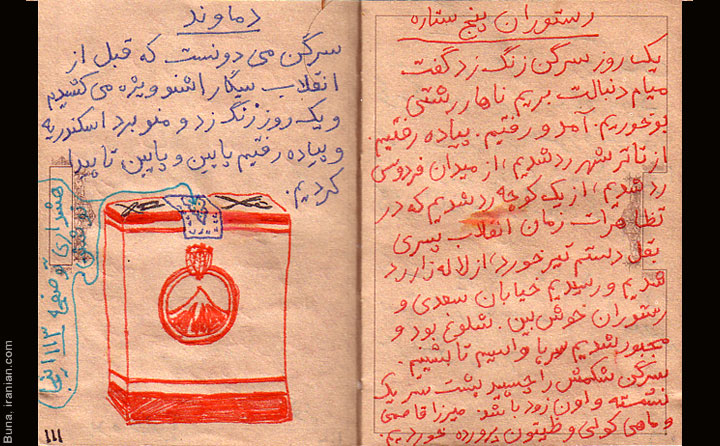 رستوران پنج ستاره
یک روز سرگن زنگ زد گفت
میام دنبالت بریم ناهار رشتی
بوخوریم. آمد و رفتیم. پیاده رفتیم.
از تاتر شهر رد شدیم، از میدان فردوسی
رد شدیم، از یک کوچه رد شدیم که در
تظاهرات زمان انقلاب پسری
بقل دستم تیر خورد، از لاله زار رد
شدیم و رسیدیم خیابان سعدی و
رستوران خوش بین. شلوغ بود و
مجبور شدیم سرپا وایسیم تا بشینیم.
سرگن شکمش را چسبید پشت سر یک
نشسته و اون زود پا شد. میرزا قاسمی
و ماهی کولی و ظیتون پرورده خوردیم.
دماوند
سرگن می دونست که قبل از
انقلاب سیگار اشنو ویژه می کشیدیم
و یک روز زنگ زد و منو برد اسکندریه
و پیاده رفتیم پایین و پایین تا پیدا
کردیم.
صفحه ۱۱۳
۱۱۱
Buna, iranian.com